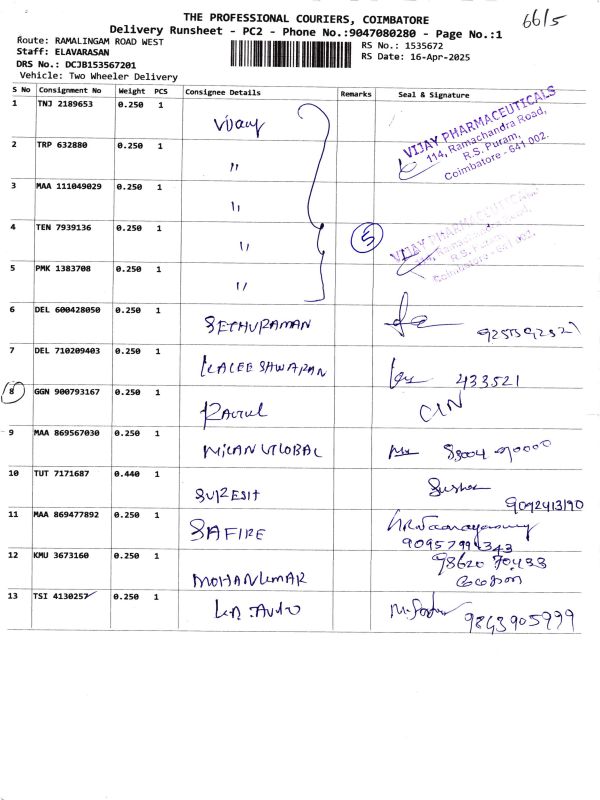 THE PROFESSIONAL COURIERS, COIMBATORE
66/5
Delivery Runsheet - PC2 - Phone No.:9047080280 - Page No.:1
Route: RAMALINGAM ROAD WEST
RS No.: 1535672
Staff: ELAVARASAN
RS Date: 16-Apr-2025
DRS No.: DCJB153567201
Vehicle: Two Wheeler Delivery
S No Consignment No Weight PCS Consignee Details Remarks Seal & Signature
1 TNJ 2189653 0.250 1 Vijay
VIJAY PHARMACEUTICALS
114, Ramachandra Road,
R.S. Puram,
Coimbatore - 641 002.
2 TRP 632880 0.250 1 "
3 MAA 111049029 0.250 1 "
4 TEN 7939136 0.250 1 " 5
VIJAY PHARMACEUTICALS
114, Ramachandra Road,
R.S. Puram,
Coimbatore - 641 002.
5 PMK 1383708 0.250 1 "
6 DEL 600428050 0.250 1 SETHURAMAN
7 DEL 710209403 0.250 1 KALEESHWARAN 433521
8 GGN 900793167 0.250 1 RAHUL
9 MAA 869567030 0.250 1 MILAN GLOBAL
10 TUT 7171687 0.440 1 SURESH
9092413190
11 MAA 869477892 0.250 1 SAFIRE
12 KMU 3673160 0.250 1 MOHANKUMAR
13 TSI 4130257 0.250 1 9843905999